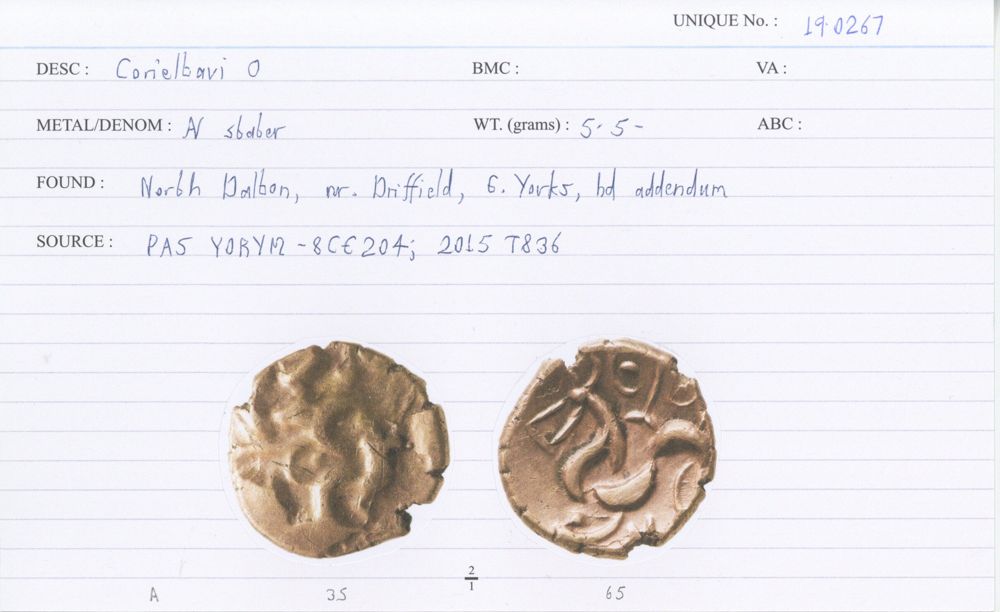 UNIQUE No. : 19.0267
DESC : Corieltavi O BMC : VA :
METAL/DENOM : AV stater WT. (grams) : 5.5- ABC :
FOUND : North Dalton, nr. Driffield, E. Yorks, hd addendum
SOURCE : PAS YORYM-8CE204; 2015 T836
2
1
A 35 65